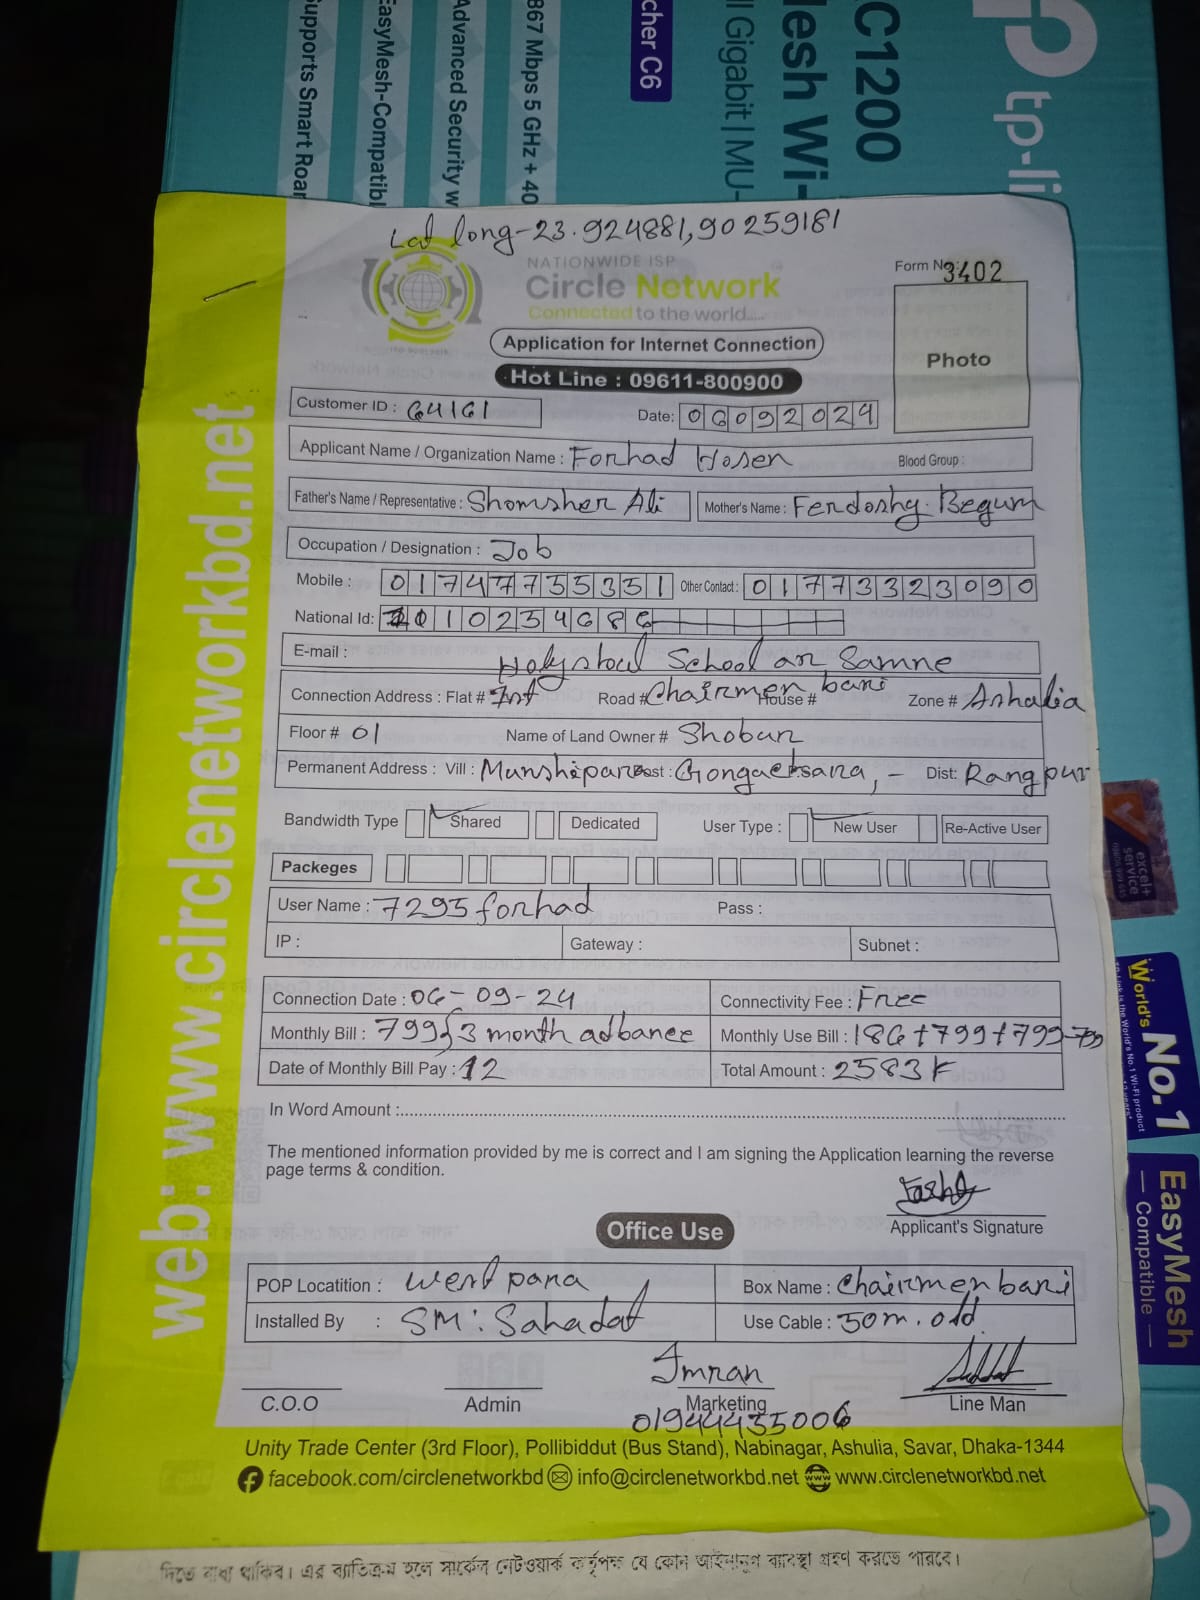 upports Smart Roar
EasyMesh-Compatibl
Advanced Security w
867 Mbps 5 GHz + 40
cher C6
ll Gigabit | MU-
esh Wi-
C1200
tp-li
Lat long-23.924881,90259181
NATIONWIDE ISP
Circle Network
Connected to the world.....
Form No: 3402
Application for Internet Connection
Photo
Hot Line : 09611-800900
Customer ID : 64161 Date: 06092024
Applicant Name / Organization Name : Forhad Hosen Blood Group :
Father's Name / Representative : Shomsher Ali Mother's Name : Ferdoshy Begum
Occupation / Designation : Job
Mobile : 01747735351 Other Contact : 01773323090
National Id: 1023468
E-mail :
School an Samne
Connection Address : Flat # Road # Chairmen bari House # Zone # Ashalia
Floor # 01 Name of Land Owner # Shobuz
Permanent Address : Vill : Munshipara Post : Dist: Rangpur
Bandwidth Type Shared Dedicated User Type : New User Re-Active User
Packeges
User Name : 7295forhad Pass :
IP : Gateway : Subnet :
Connection Date : 06-09-24 Connectivity Fee : Free
Monthly Bill : 799 3 month adbance Monthly Use Bill : 186+799+799+799
Date of Monthly Bill Pay : 12 Total Amount : 2583
In Word Amount :
The mentioned information provided by me is correct and I am signing the Application learning the reverse
page terms & condition.
Applicant's Signature
Office Use
POP Locatition : West para Box Name : Chairmen bari
Installed By : SM: Sahadat Use Cable : 50m. old
Imran
C.O.O Admin Marketing Line Man
01944435006
Unity Trade Center (3rd Floor), Pollibiddut (Bus Stand), Nabinagar, Ashulia, Savar, Dhaka-1344
facebook.com/circlenetworkbd info@circlenetworkbd.net www.circlenetworkbd.net
web: www.circlenetworkbd.net
excel+
service
World's
No.1
EasyMesh
— Compatible —
দিতে বাধ্য থাকিব। এর ব্যতিক্রম হলে সার্কেল নেটওয়ার্ক কর্তৃপক্ষ যে কোন আইনানুগ ব্যবস্থা গ্রহণ করতে পারবে।